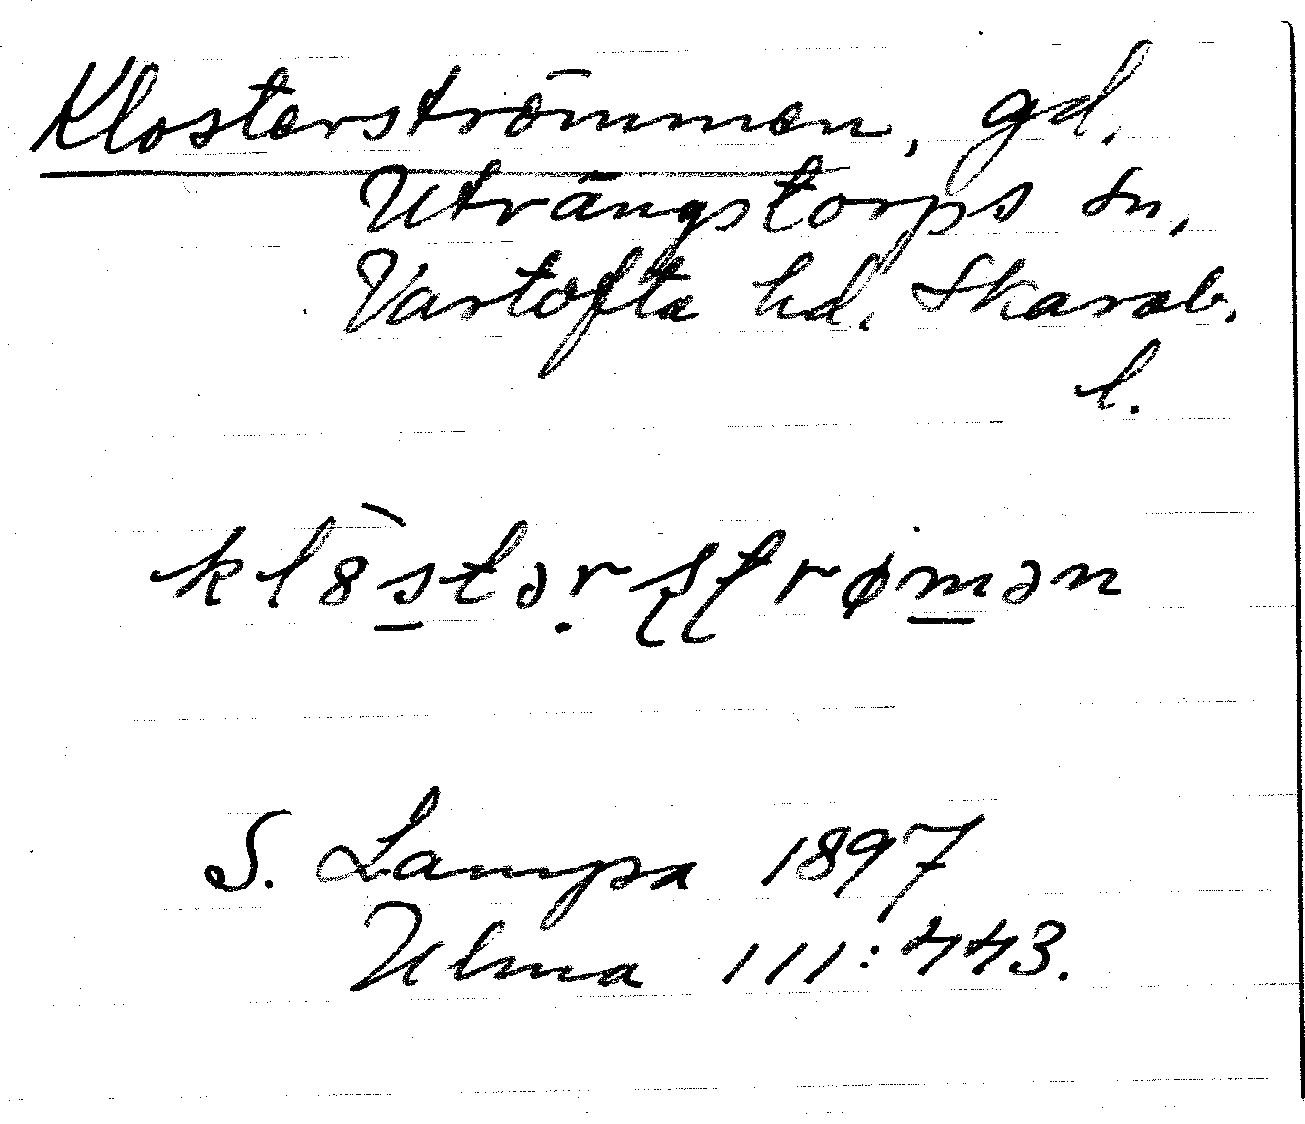 Klosterströmmen, gd,
Utvängstorps sn,
Vartofta hd, Skarab.
l.
kl8̀s̲tə̣rʂʈrøm̲ən
S. Lampa 1897
Ulma 111:443.